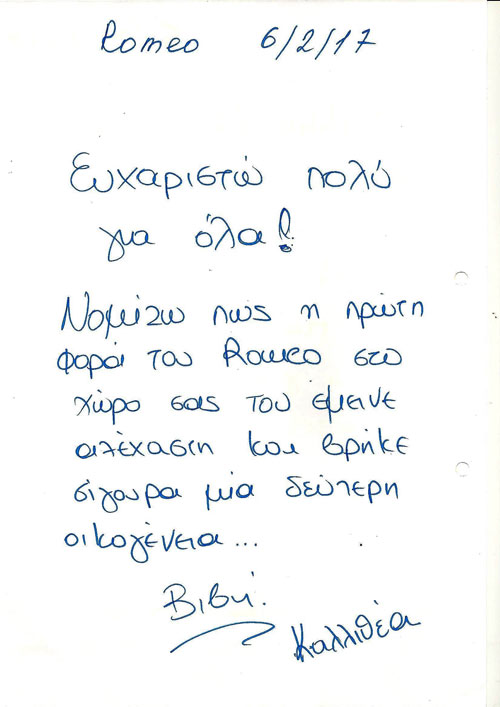 Romeo 6/2/17
Ευχαριστώ πολύ
για όλα!
Νομίζω πως η πρώτη
φορά του Romeo στο
χώρο σας του έμεινε
αλέχαστη και βρήκε
σίγουρα μία δεύτερη
οικογένεια...
Βιβή.
Καλλιθέα